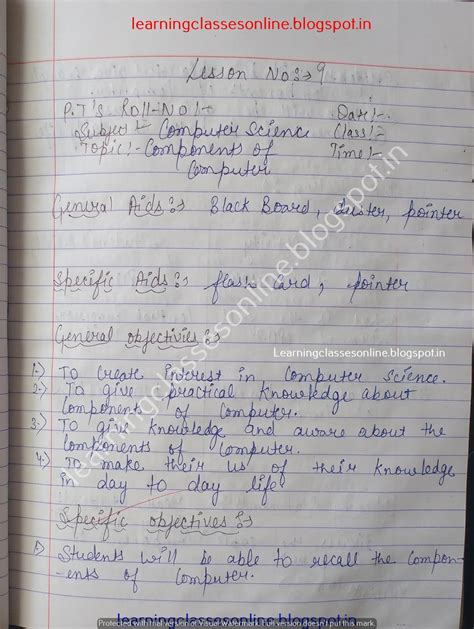 learningclassesonline.blogspot.in
Lesson No:→ 9
P.T's Roll-No:- Date:-
Subject:- Computer Science Class:-
Topic:- Components of Time:-
Computer
General Aids :→ Black Board, duster, pointer
Specific Aids :→ flash Card, pointer
General objectivies :→
Learningclassesonline.blogspot.in
1.) To create interest in Computer Science.
2.) To give practical knowledge about
Components of Computer.
3.) To give knowledge and aware about the
Components of Computer.
4.) To make their us of their knowledge
in day to day life
Specific objectives :→
1) Students will be able to recall the Compon-
ents of Computer.
learningclassesonline.blogspot.in
Protected with trial version of Visual Watermark. Full version doesn't put this mark.
learningclassesonline.blogspot.in